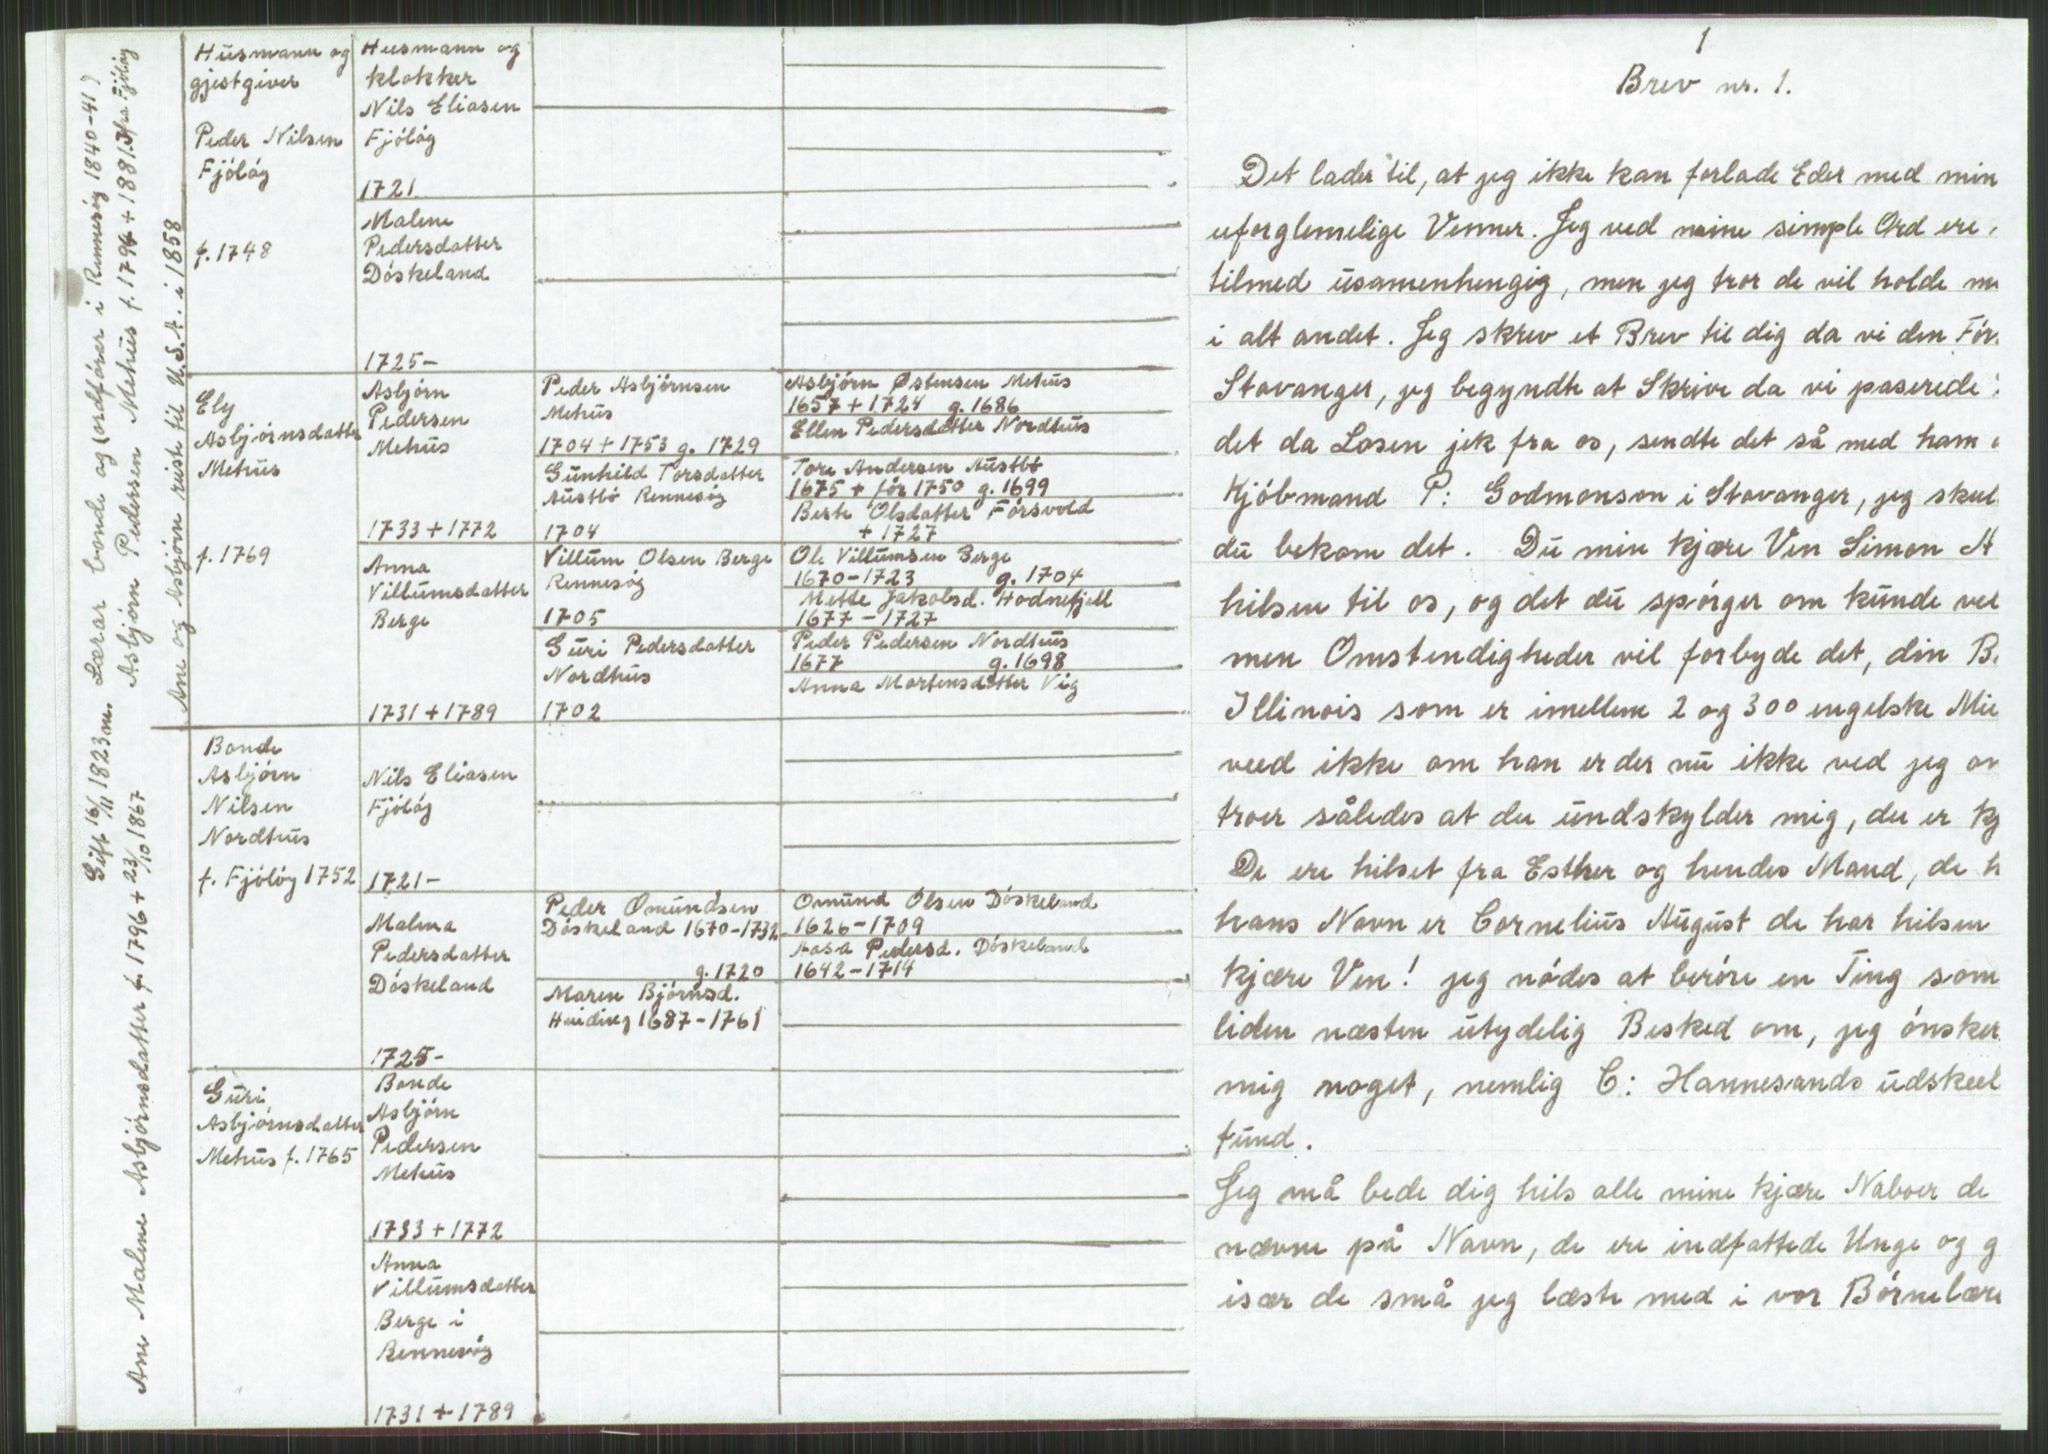 Ane Malene Asbjørnsdatter f. 1796 + 23/10 1867
Gift 16/11 1823 m. Lærar bonde og (ordfører i Rennesøy 1840-41)
Asbjørn Pedersen Mehus f. 1796 + 1881. fra Fjöløy
Ane og Asbjørn reiste til U.S.A. i 1858
Husmann og
gjestgiver
Peder Nilsen
Fjöløy
f. 1748
Husmann og
klokker
Nils Eliasen
Fjöløy
1721
Malene
Pedersdatter
Döskeland
1725-
Ely
Asbjørnsdatter
Mehus
f. 1769
Asbjørn
Pedersen
Mehus
1733 + 1772
Peder Asbjørnsen
Mehus
1704 + 1753 g. 1729
Asbjørn Østensen Mehus
1657 + 1724 g. 1686
Ellen Pedersdatter Nordhus
Gunhild Torsdatter
Austbö Rennesøy
1704
Tore Andersen Austbö
1675 + før 1750 g. 1699
Berte Olsdatter Førsvold
+ 1727
Anna
Villumsdatter
Berge
1731 + 1789
Villum Olsen Berge
Rennesøy
1705
Ole Villumsen Berge
1670-1723 g. 1704
Mette Jakobsd. Hodnefjell
1677-1727
Guri Pedersdatter
Nordhus
1702
Peder Pedersen Nordhus
1677 g. 1698
Anna Mortensdatter Vig
Bonde
Asbjørn
Nilsen
Nordhus
f. Fjöløy 1752
Nils Eliasen
Fjöløy
1721-
Malena
Pedersdatter
Döskeland
1725-
Peder Omundsen
Döskeland 1670-1732
g. 1720
Omund Olsen Döskeland
1626-1709
Aasa Pedersd. Döskeland
1642-1714
Maren Bjørnsd.
Heiding 1687-1761
Guri
Asbjørnsdatter
Mehus f. 1765
Bonde
Asbjørn
Pedersen
Mehus
1733 + 1772
Anna
Villumsdatter
Berge i
Rennesøy
1731 + 1789
1
Brev nr. 1.
Det lader til, at jeg ikke kan forlade Eder med min
uforglemelige Venner. Jeg ved mine simple Ord ere
tilmed usamenhengig, men jeg tror de vil holde
i alt andet. Jeg skrev et Brev til dig da vi den
Stavanger, jeg begyndte at Skrive da vi paserede
det da Losen jek fra os, sendte det så med ham
Kjöbmand P: Godmonson i Stavanger, jeg
du bekom det. Du min kjære Ven Simon A
hilsen til os, og det du spörger om kunde
men Omstendigheder vil forbyde det, din B.
Illinois som er imellem 2 og 300 engelske
veed ikke om han er der nu ikke ved jeg
troer således at du undskylder mig, du er
De ere hilset fra Esther og hendes Mand, de h
hans Navn er Cornelius August de har hilsen
kjære Ven! jeg nödes at beröre en Ting som
liden næsten utydelig Besked om, jeg önsker
mig noget, nemlig C: Hannesands
fund.
Jeg må bede dig hils alle mine kjære Naboer de
nævne på Navn, de ere indfattede Unge og g
især de små jeg læste med i vor Börnelære